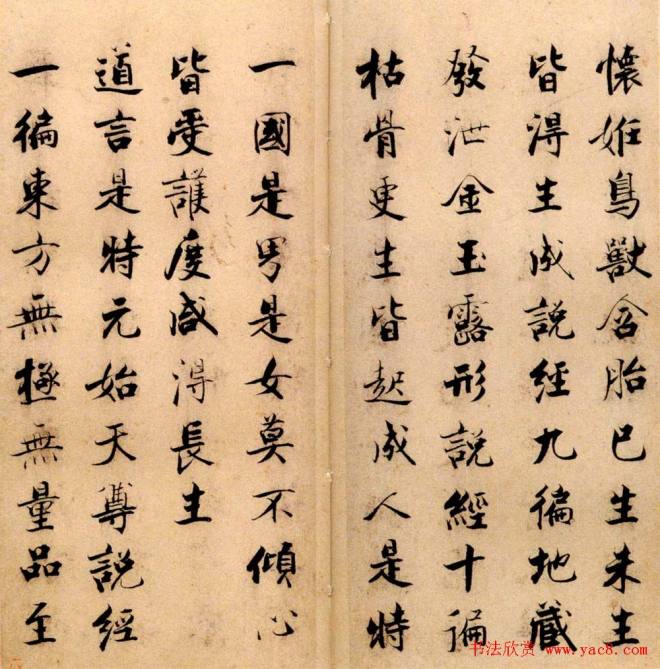 懷妊鳥獸含胎已生未生
皆得生成說經九徧地藏
發泄金玉露形說經十徧
枯骨更生皆起成人是特
一國是男是女莫不傾心
皆受護度咸得長生
道言是特元始天尊說經
一徧東方無極無量品至
书法欣赏 www.yac8.com